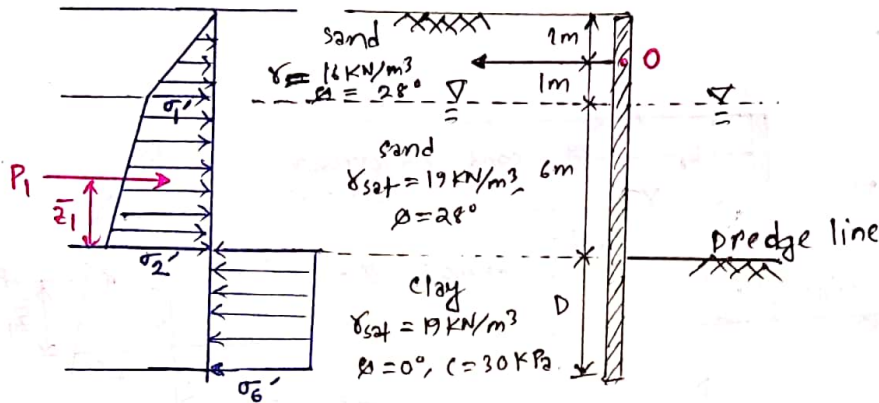 sand
γ = 16 KN/m³
ø = 28°
1m
O
1m
σ₁'
sand
γsat = 19 KN/m³
ø = 28°
6m
P₁
z̄₁
σ₂'
Dredge line
clay
γsat = 19 KN/m³
ø = 0°, C = 30 KPa
D
σ₆'